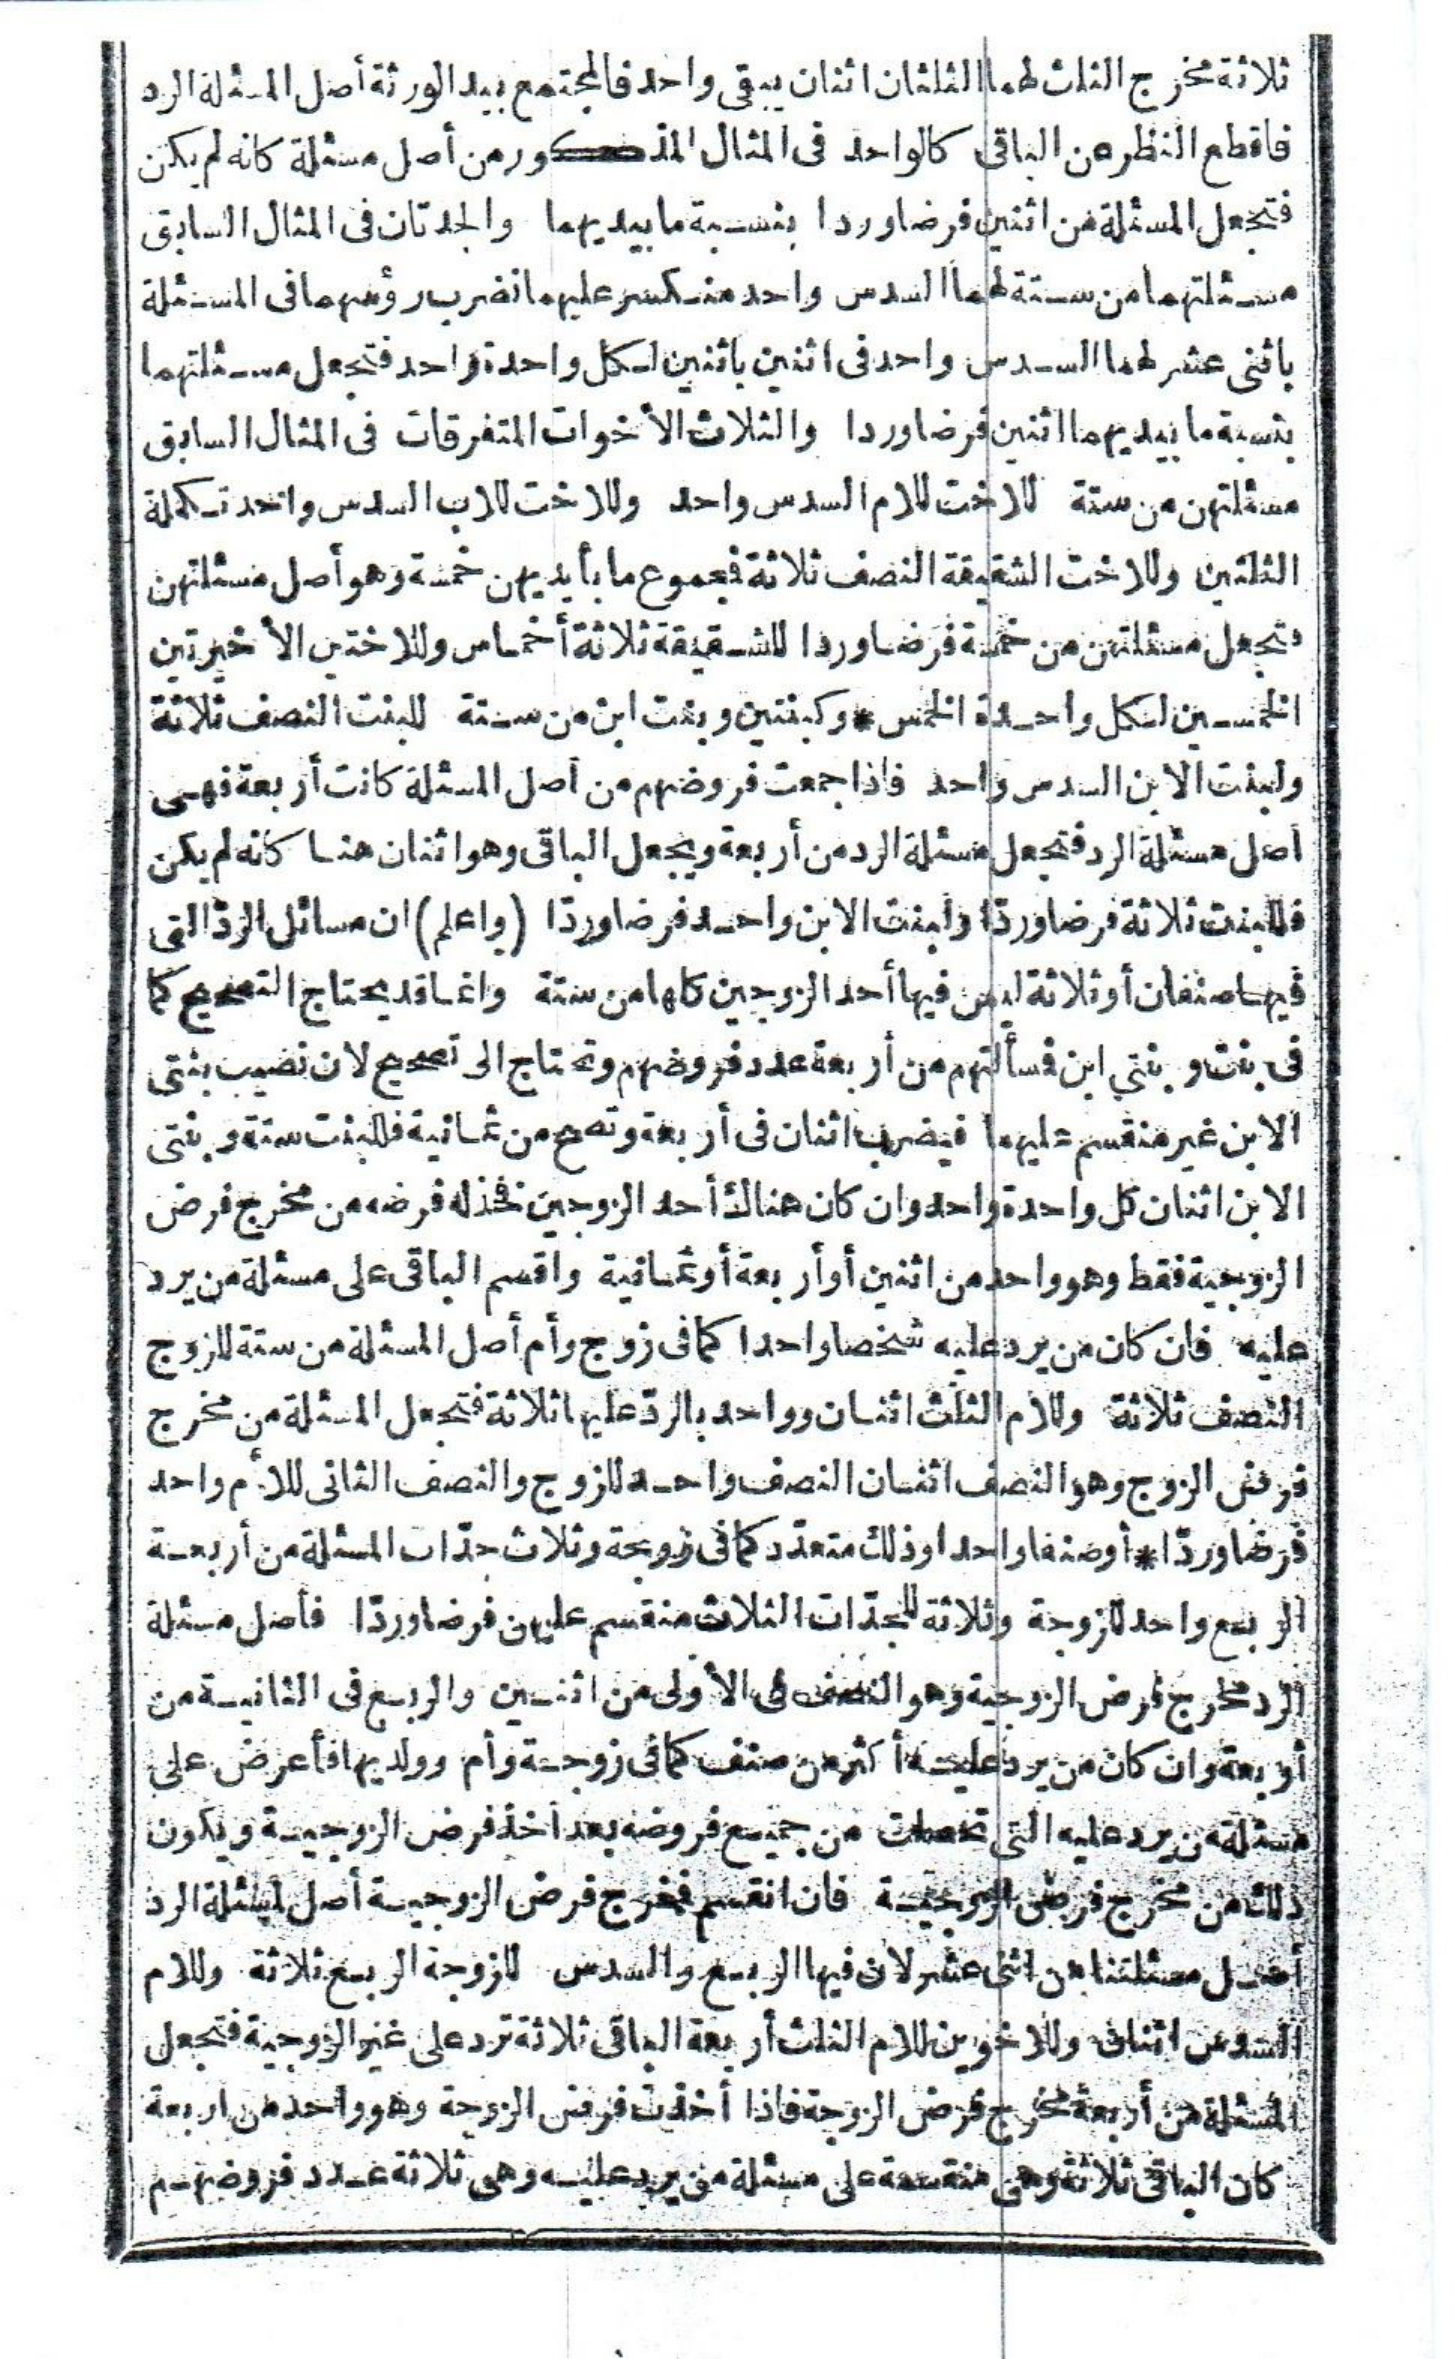 ثلاثة مخرج الثلث لهما الثلثان اثنان يبقى واحد فالمجتمع بيد الورثة أصل المسئلة الرد
فاقطع النظر عن الباقى كالواحد فى المثال المذكور من أصل مسئلة كانه لم يكن
فتجعل المسئلة من اثنين فرضا وردا بنسبة ما بيديهما والجدتان فى المثال السابق
مسئلتهما من ستة لهما السدس واحد منكسر عليهما نضرب رؤسهما فى المسئلة
باثنى عشر لهما السدس واحد فى اثنين باثنين لكل واحدة واحد فتجعل مسئلتهما
بنسبة ما بيديهما اثنين فرضا وردا والثلاث الأخوات المتفرقات فى المثال السابق
مسئلتهن من ستة للاخت للام السدس واحد وللاخت للاب السدس واحد تكملة
الثلثين وللاخت الشقيقة النصف ثلاثة فجموع ما بأيديهن خمسة وهو أصل مسئلتهن
فتجعل مسئلتهن من خمسة فرضا وردا للشقيقة ثلاثة أخماس وللاختين الأخيرتين
الخمسين لكل واحدة الخمس * وكبنتين وبنت ابن من ستة للبنت النصف ثلاثة
ولبنت الابن السدس واحد فاذا جمعت فروضهم من أصل المسئلة كانت أربعة فهى
أصل مسئلة الرد فتجعل مسئلة الرد من أربعة ويجعل الباقى وهو اثنان هنا كانه لم يكن
فللبنت ثلاثة فرضا وردّا ولبنت الابن واحد فرضا وردّا (واعلم) ان مسائل الردّ التى
فيها صنفان أو ثلاثة ليس فيها أحد الزوجين كلها من ستة وانما قد يحتاج التصحيح كما
فى بنت وبنتي ابن فسألتهم من أربعة عدد فروضهم وتحتاج الى تصحيح لان نصيب بنتى
الابن غير منقسم عليهما فيضرب اثنان فى أربعة وتصح من ثمانية فللبنت ستة وبنتى
الابن اثنان كل واحدة واحد وان كان هناك أحد الزوجين فخذ له فرضه من مخرج فرض
الزوجية فقط وهو واحد من اثنين أو أربعة أو ثمانية واقسم الباقى على مسئلة من يرد
عليه فان كان من يرد عليه شخصا واحدا كما فى زوج وأم أصل المسئلة من ستة للزوج
النصف ثلاثة وللام الثلث اثنان وواحد بالردّ عليها ثلاثة فتجعل المسئلة من مخرج
فرض الزوج وهو النصف اثنان النصف واحد للزوج والنصف الثانى للأم واحد
فرضا وردّا * أو صنفا واحدا وذلك متعدّد كما فى زوجة وثلاث جدّات المسئلة من أربعة
الربع واحد للزوجة وثلاثة للجدّات الثلاث منقسم عليهن فرضا وردّا فأصل مسئلة
الرد مخرج فرض الزوجية وهو النصف فى الأولى من اثنين والربع فى الثانية من
أربعة وان كان من يرد عليه أكثر من صنف كما فى زوجة وأم وولديها فأعرض على
مسئلة من يرد عليه التى تحصلت من جميع فروضه بعد أخذ فرض الزوجية ويكون
ذلك من مخرج فرض الزوجية فان انقسم فمخرج فرض الزوجية أصل لمسئلة الرد
أصل مسئلتنا من اثنى عشر لان فيها الربع والسدس للزوجة الربع ثلاثة وللام
السدس اثنان وللاخوين للام الثلث أربعة الباقى ثلاثة ترد على غير الزوجية فتجعل
المسئلة من أربعة مخرج فرض الزوجة فاذا أخذت فرض الزوجة وهو واحد من اربعة
كان الباقى ثلاثة وهى منقسمة على مسئلة من يرد عليه وهى ثلاثة عدد فروضهم